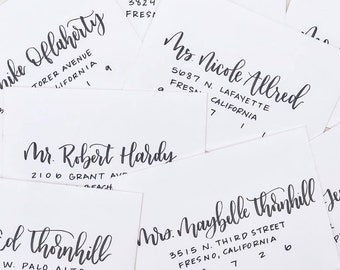 3824
FRESNO,
Mike Oflaherty
TORER AVENUE
CALIFORNIA
9
Ms. Nicole Allred
5687 N. LAFAYETTE
FRESNO, CALIFORNIA
9 7 1 1
Mr. Robert Hardy
2106 GRANT AVE
BEACH
Mrs. Maybelle Thornhill
3515 N. THIRD STREET
FRESNO, CALIFORNIA
7 2 6
Ed Thornhill
W. PALO ALTO
Je